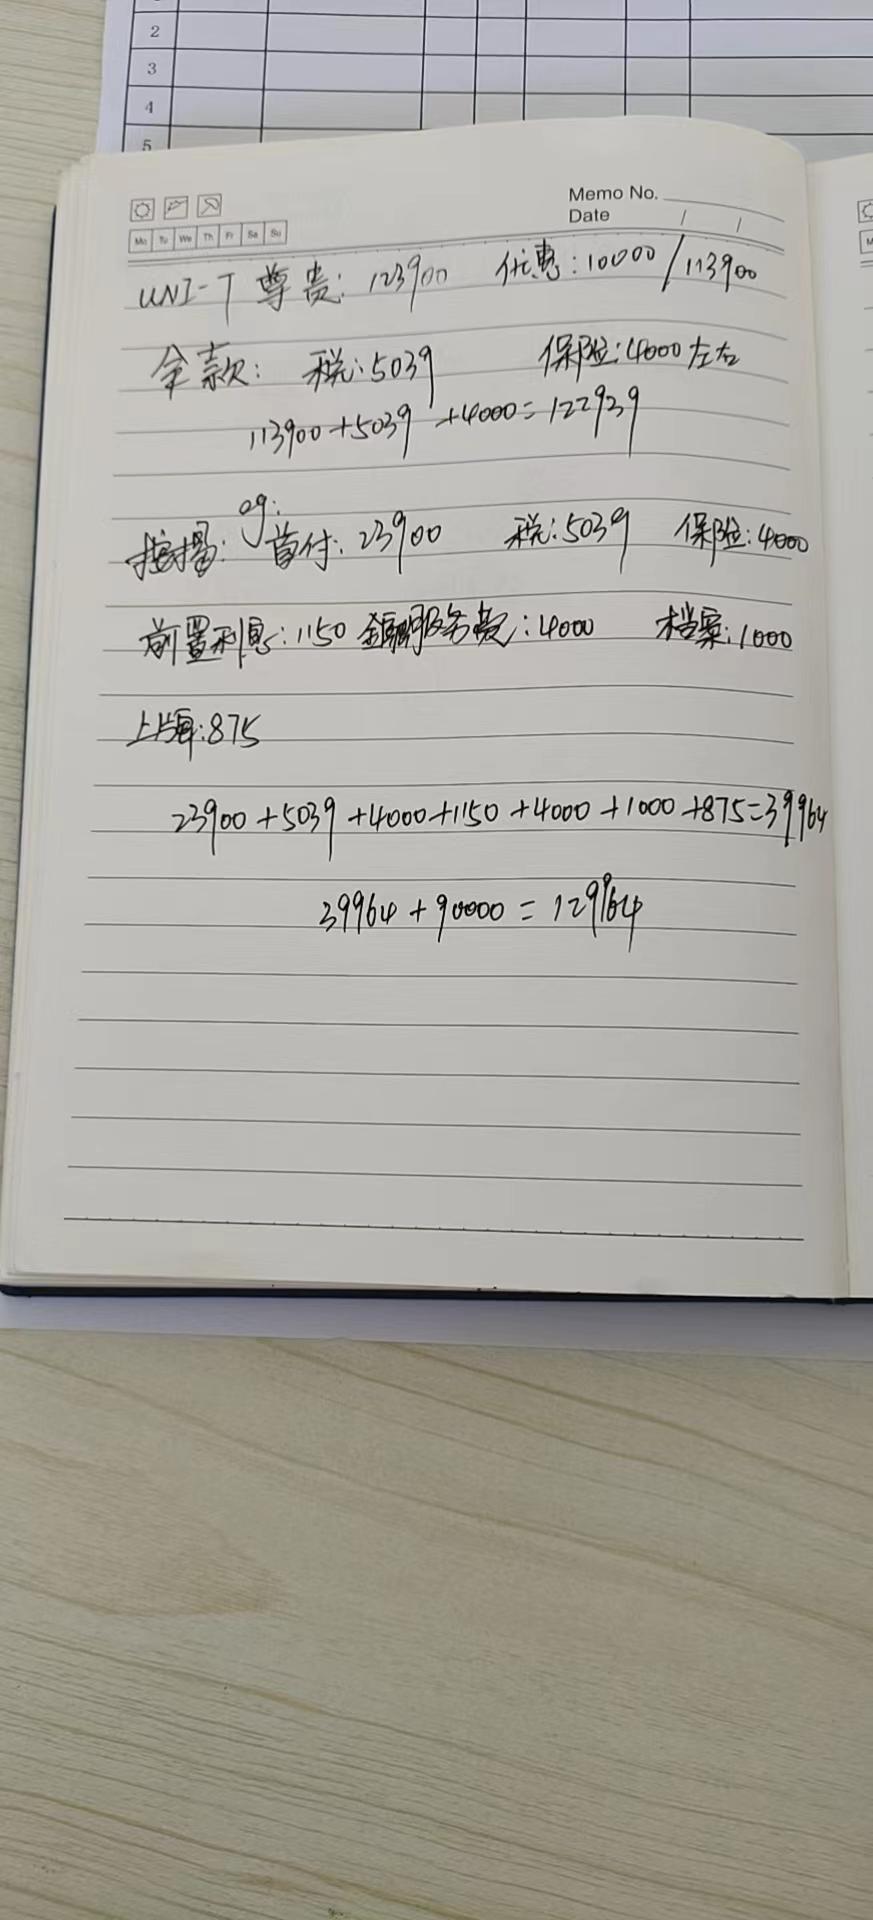 2
3
4
5
Memo No.
Date / /
Mo Tu We Th Fr Sa Su
UNI-T 尊贵: 123900 优惠:10000/113900
全款: 税:5039 保险:4000左右
113900+5039+4000=122939
按揭: 首付:23900 税:5039 保险:4000
前置利息:1150 金融服务费:4000 档案:1000
上牌:875
23900+5039+4000+1150+4000+1000+875=39964
39964+90000=129964